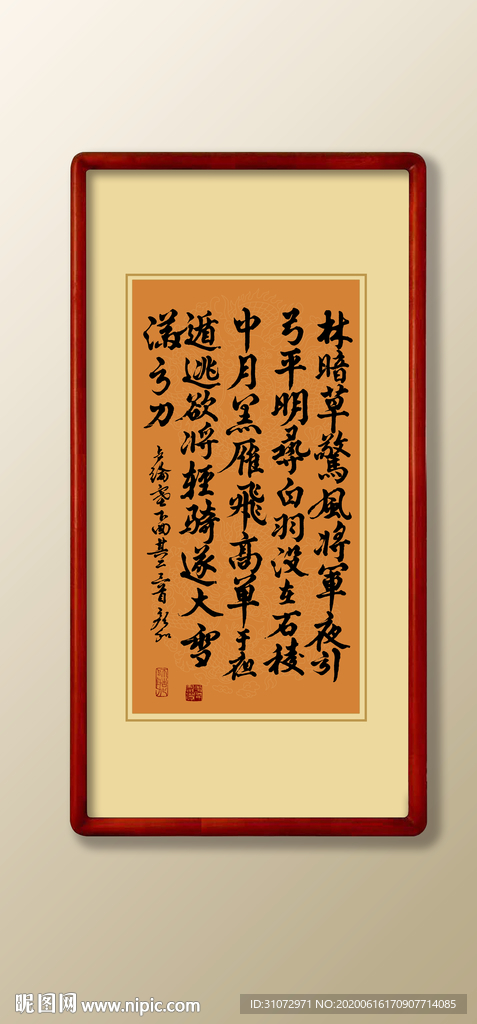 林暗草驚風將軍夜引
弓平明尋白羽沒在石稜
中月黑雁飛高單于夜
遁逃欲將輕騎逐大雪
滿弓刀
卢綸塞下曲其二三首
昵图网 www.nipic.com
ID:31072971 NO:20200616170907714085